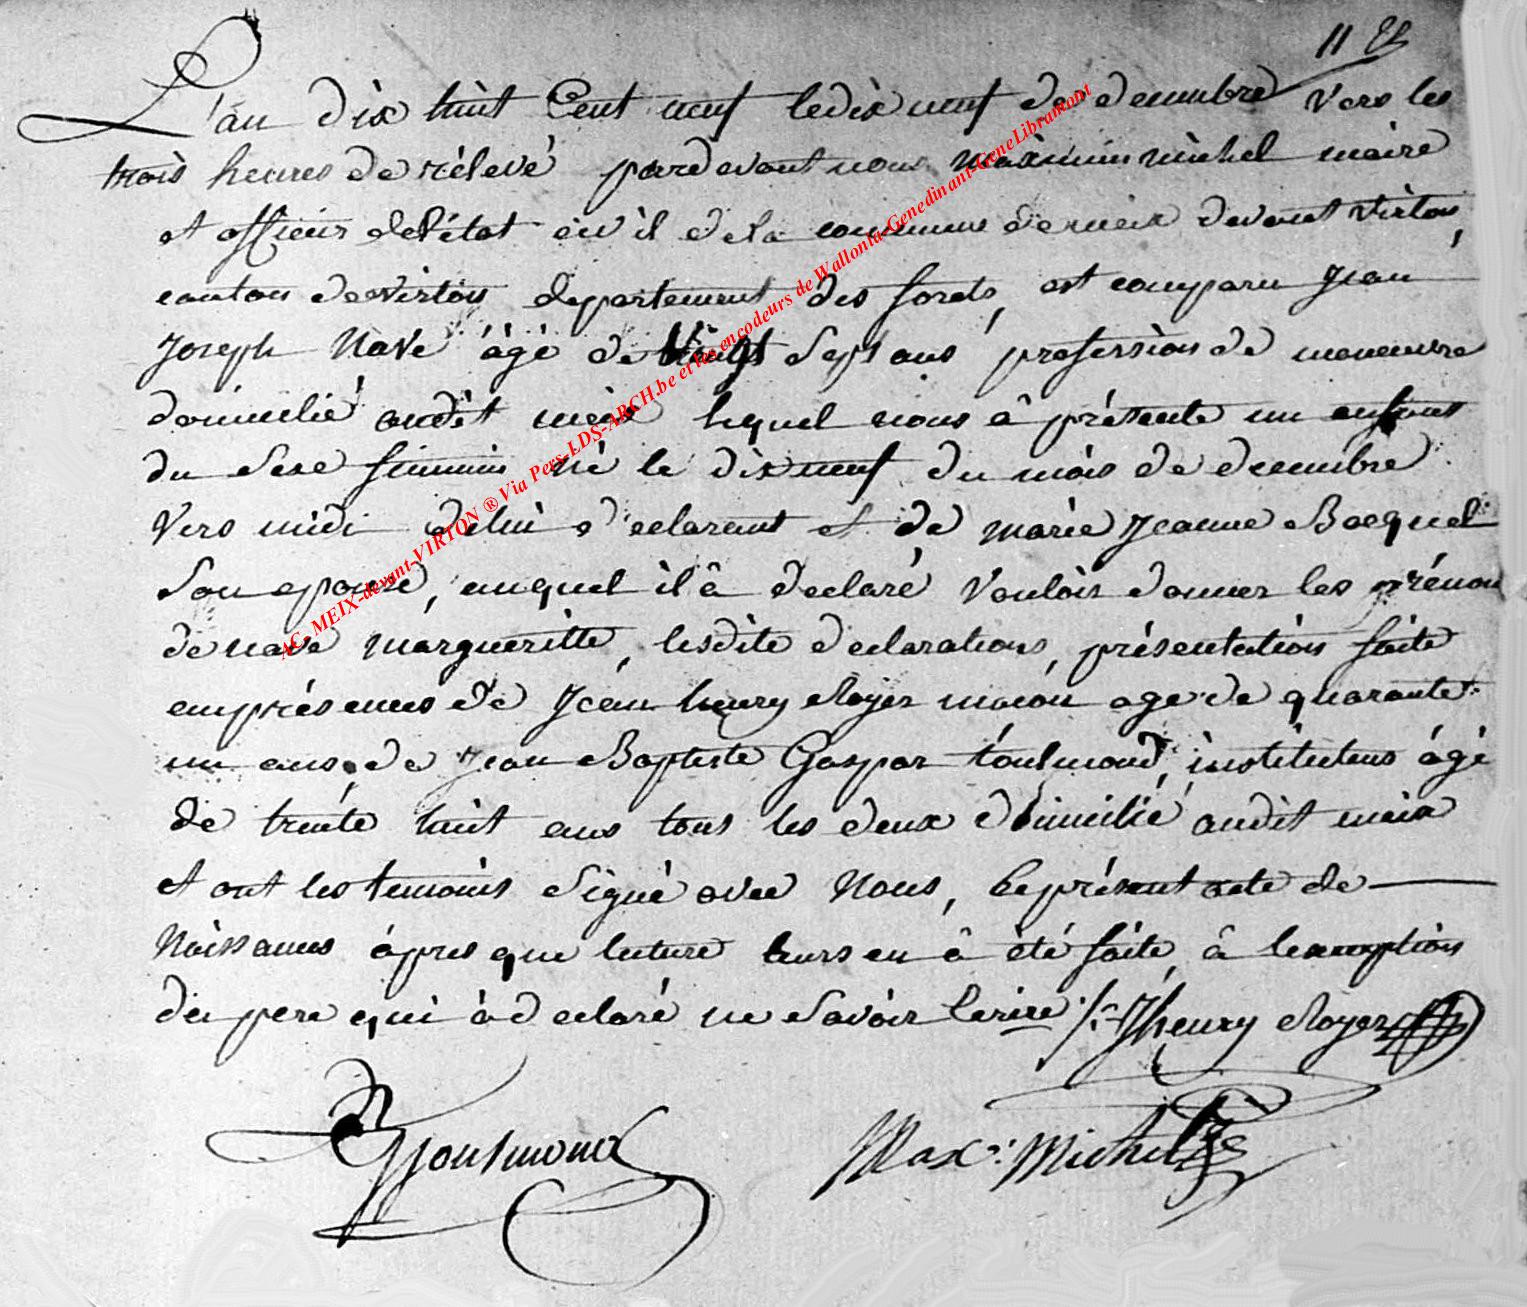 11
L'an dix huit Cent neuf le dix neuf de decembre vers les
trois heures de rélevé pardevant nous Maximin michel maire
et officier de l'état civil de la commune de meix devant virton,
canton de virton departement des forets, est comparu Jean
Joseph Nave âgé de Vingt Sept ans profession de manoeuvre
domicilié audit meix lequel nous â présenté un enfant
du Sexe feminin né le dix neuf du mois de decembre
Vers midi de lui declarant et de marie Jeanne Bocquel
Son epouse, auquel il â declaré Vouloir donner les prénom
de nave margueritte, lesdite declarations, présentation faite
en présences de Jean henry Royer macon age de quarante
un ans, de Jean Baptiste Gaspar toulmond, instituteur âgé
de trente huit ans tous les deux domicilié audit meix
et ont les temoins Signé avec Nous, le présent acte de
Naissances âpres que lecture leurs en â été faite, â lexception
du pere qui â declaré ne Savoir Ecrire henry Royer
Toulmond Max: Michel
AC. MEIX-devant-VIRTON ® Via Pers-LDS-ARCH.be et les encodeurs de Wallonia-Genedinant-GeneLibramont